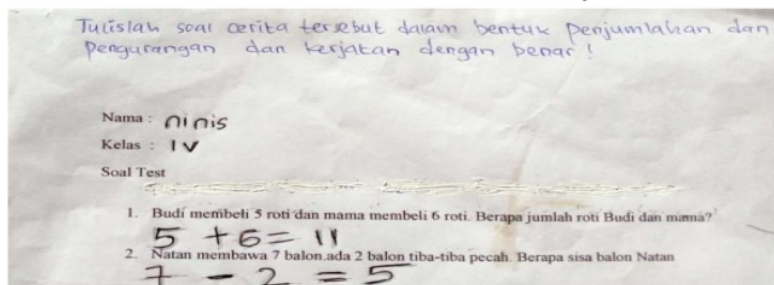 Tulislah soal cerita tersebut dalam bentuk Penjumlahan dan
Pengurangan dan kerjakan dengan benar!
Nama : ninis
Kelas : IV
Soal Test
1. Budi membeli 5 roti dan mama membeli 6 roti. Berapa jumlah roti Budi dan mama?
5 + 6 = 11
2. Natan membawa 7 balon,ada 2 balon tiba-tiba pecah. Berapa sisa balon Natan
7 - 2 = 5